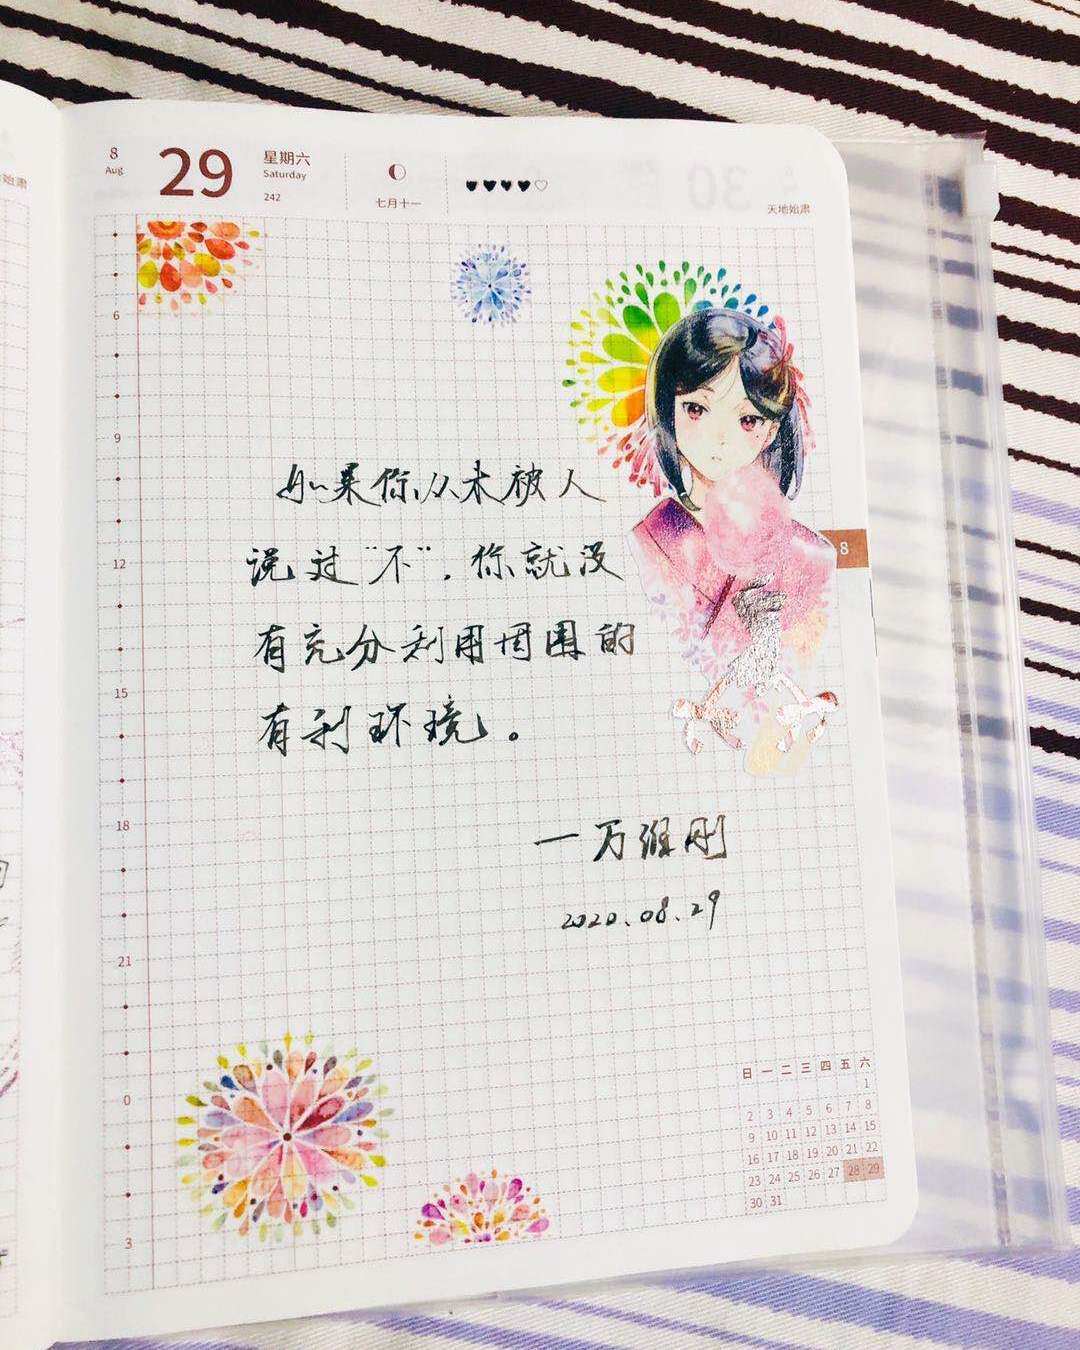 8
Aug
29
星期六
Saturday
242
七月十一
天地始肃
6
9
12
15
18
21
0
3
如果你从未被人
说过“不”，你就没
有充分利用周围的
有利环境。
一万维刚
2020.08.29
8
日 一 二 三 四 五 六
1
2 3 4 5 6 7 8
9 10 11 12 13 14 15
16 17 18 19 20 21 22
23 24 25 26 27 28 29
30 31